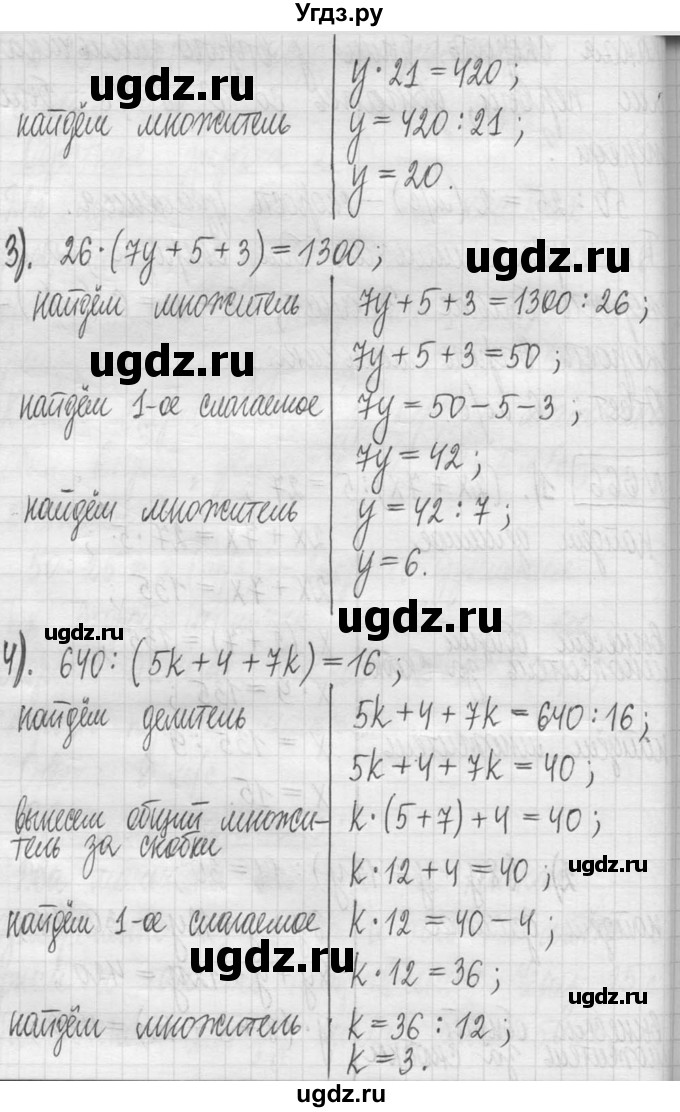 Угдз.ру
y·21=420;
ugdz.ru
найдём множитель
y=420:21;
y=20.
3). 26·(7y+5+3)=1300;
ugdz.ru
найдём множитель
7y+5+3=1300:26;
ugdz.ru
7y+5+3=50;
найдём 1-ое слагаемое
7y=50-5-3;
7y=42;
найдём множитель
y=42:7;
y=6.
ugdz.ru
ugdz.ru
4). 640:(5k+4+7k)=16;
найдём делитель
5k+4+7k=640:16;
5k+4+7k=40;
вынесем общий множи-
k·(5+7)+4=40;
тель за скобки
k·12+4=40;
ugdz.ru
найдём 1-ое слагаемое
k·12=40-4;
ugdz.ru
k·12=36;
ugdz.ru
найдём множитель
k=36:12;
k=3.
ugdz.ru